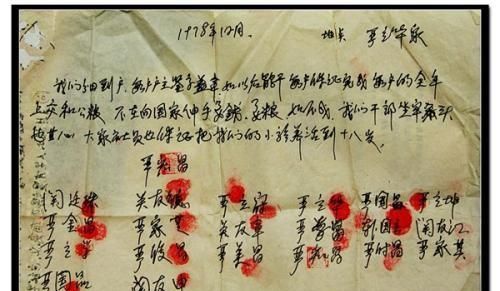 1978年12月. 地点 严立华家
我们分田到户,每户户主签字盖章,如以后能干,每户保证完成每户的全年
上交和公粮,不在向国家伸手要钱,要粮,如不成,我们干部坐牢杀头
也甘心,大家社员也保证把我们的小孩养活到十八岁.
严宏昌
关廷珠 关友德 严立符 严立华 严国昌 严立坤
严金昌 严家芝 关友章 严学昌 韩国云 关友江
严立学 严俊昌 严美昌 严宏昌 严付昌 严家其
严国品 关友申